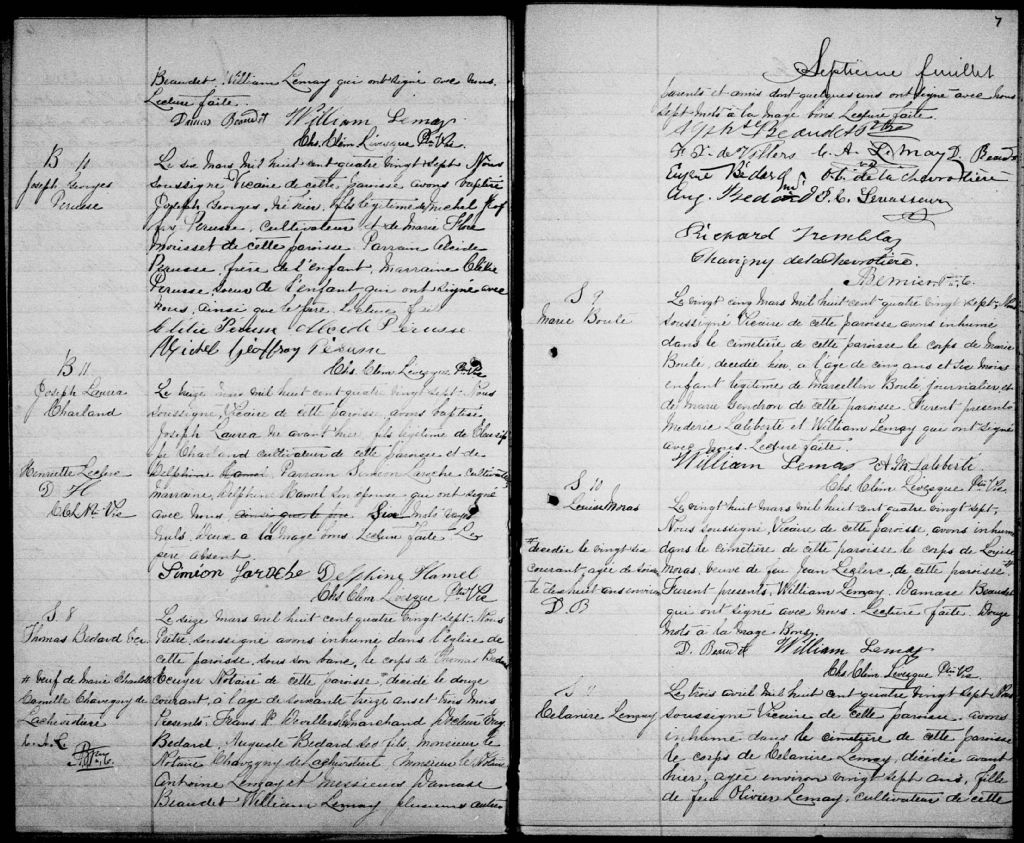 Beaudet, William Lemay qui ont signé avec nous.
Lecture faite.
Damas Beaudet William Lemay
Chs. Clém. Lévesque Ptre Vic.
B 10
Joseph Georges
Perusse
Le six Mars mil huit cent quatre vingt sept, Nous
soussigné Vicaire de cette paroisse avons baptisé
Joseph Georges, né hier, fils légitime de Michel Jof
fry Perusse, cultivateur et de Marie Flore
Moisset de cette paroisse. Parrain Alcide
Perusse, frère de l'enfant, Marraine Clélie
Perusse, soeur de l'enfant qui ont signé avec
nous, ainsi que le père. Lecture faite
Clélie Perusse Alcide Perusse
Michel Géoffroy Perusse
Chs. Clém. Lévesque Ptre Vic
B 11
Joseph Laurea
Charland
Henriette Leclerc
D. H
C. C. L. Ptre Vic
Le treize mars mil huit cent quatre vingt sept. Nous
soussigné, Vicaire de cette paroisse, avons baptisé
Joseph Laurea né avant hier, fils légitime de
Charland cultivateur de cette paroisse et de
Delphine Hamel Parrain Siméon Laroche cultivateur
marraine, Delphine Hamel son épouse qui ont signé
avec nous ainsi que le père. Six mots rayés
nuls. Deux à la mage bons Lecture faite Le
père absent.
Siméon Laroche Delphine Hamel
Chs Clém Lévesque Ptre Vic
S. 8
Thomas Bedard Ecr
# veuf de Marie Charlotte
Camille Chavigny de
Lachevrotière.
L. A. L
Le seize Mars mil huit cent quatre vingt sept. Nous
Prêtre, soussigné avons inhumé dans l'église de
cette paroisse, sous son banc, le corps de Thomas Bedard
Ecuyer Notaire de cette paroisse # décédé le douze
courant, à l'age de soixante treize ans et trois mois
Présents. Frans. Xr. Devillers, marchand Docteur Eug
Bedard, Auguste Bedard ses fils, monsieur le
Notaire Chavigny de Lachevrotière, monsieur le Notaire
Antoine Lemay et messieurs Damase
Beaudet William Lemay plusieurs autres
7
Septième feuillet
parents et amis dont quelques uns ont signé avec nous
sept mots à la mage bons Lecture faite
F. X. de Villers L. A. Lemay D. Beaudet
Eugène Bédard M.D. Ob. de la Chevrotière
Aug. Bedard P. C. Levasseur
Richard Tremblay
Chavigny de la Chevrotière.
Bernier Ptre C.
S 9
Marie Boulé
Le vingt cinq Mars mil huit cent quatre vingt sept. Nous
soussigné Vicaire de cette paroisse avons inhumé
dans le cimetière de cette paroisse le corps de Marie
Boulé, décédée hier, à l'age de cinq ans et six mois
enfant légitime de Marcellin Boulé, journalier, et
de Marie Gendron de cette paroisse. Furent presents
Mederie Laliberté et William Lemay qui ont signé
avec nous. Lecture faite.
William Lemay A. M. Laliberté
Chs. Clém Lévesque Ptre Vic
S 10
Louise Moras
# décédée le vingt six
courant, agée de soixan
te dix huit ans environ
D. B
Le vingt huit mars mil huit cent quatre vingt sept.
Nous soussigné, Vicaire de cette paroisse, avons inhumé
dans le cimetière de cette paroisse le corps de Louise
Moras, veuve de feu Jean Leclerc, de cette paroisse #
Furent présents, William Lemay, Damase Beaudet
qui ont signé avec nous. Lecture faite. Douze
mots à la mage Bons.
D. Beaudet William Lemay
Chs. Clém. Lévesque Ptre Vic
S 11
Célanire Lemay
Le trois avril mil huit cent quatre vingt sept. Nous
soussigné Vicaire de cette paroisse, avons
inhumé dans le cimetière de cette paroisse
le corps de Célanire Lemay, décédée avant
hier, agée environ vingt sept ans, fille
de feu Olivier Lemay, cultivateur de cette